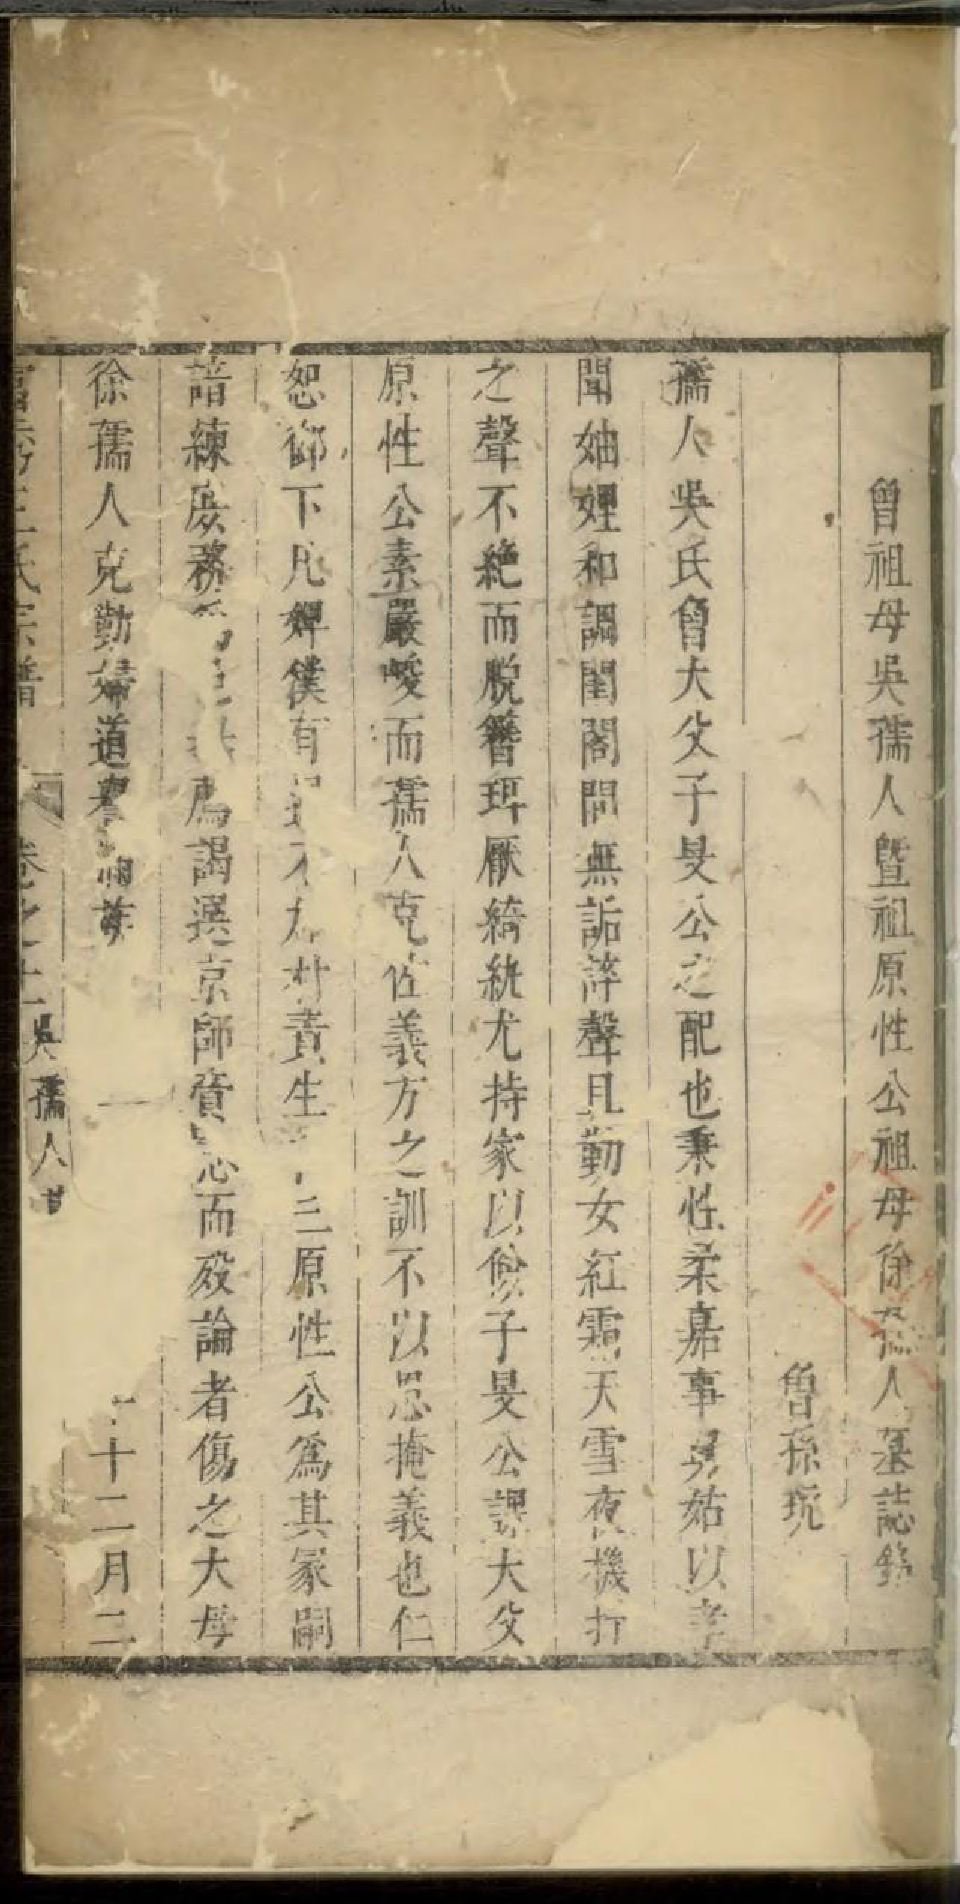 曾祖母吳孺人暨祖原性公祖母徐孺人墓誌銘
曾孫玩
孺人吳氏曾大父子旻公之配也秉性柔嘉事舅姑以孝
聞妯娌和調閨閣間無詬誶聲且勤女紅霜天雪夜機杼
之聲不絕而脫簪珥厭綺紈尤持家以儉子旻公課大父
原性公素嚴峻而孺人克佐義方之訓不以恩掩義也仁
恕御下凡婢僕有不加朴責生三原性公為其冢嗣
諳練庶務為謁選京師賫志而歿論者傷之大母
徐孺人克勤婦道十二月二
氏宗譜 卷之十 吳孺人